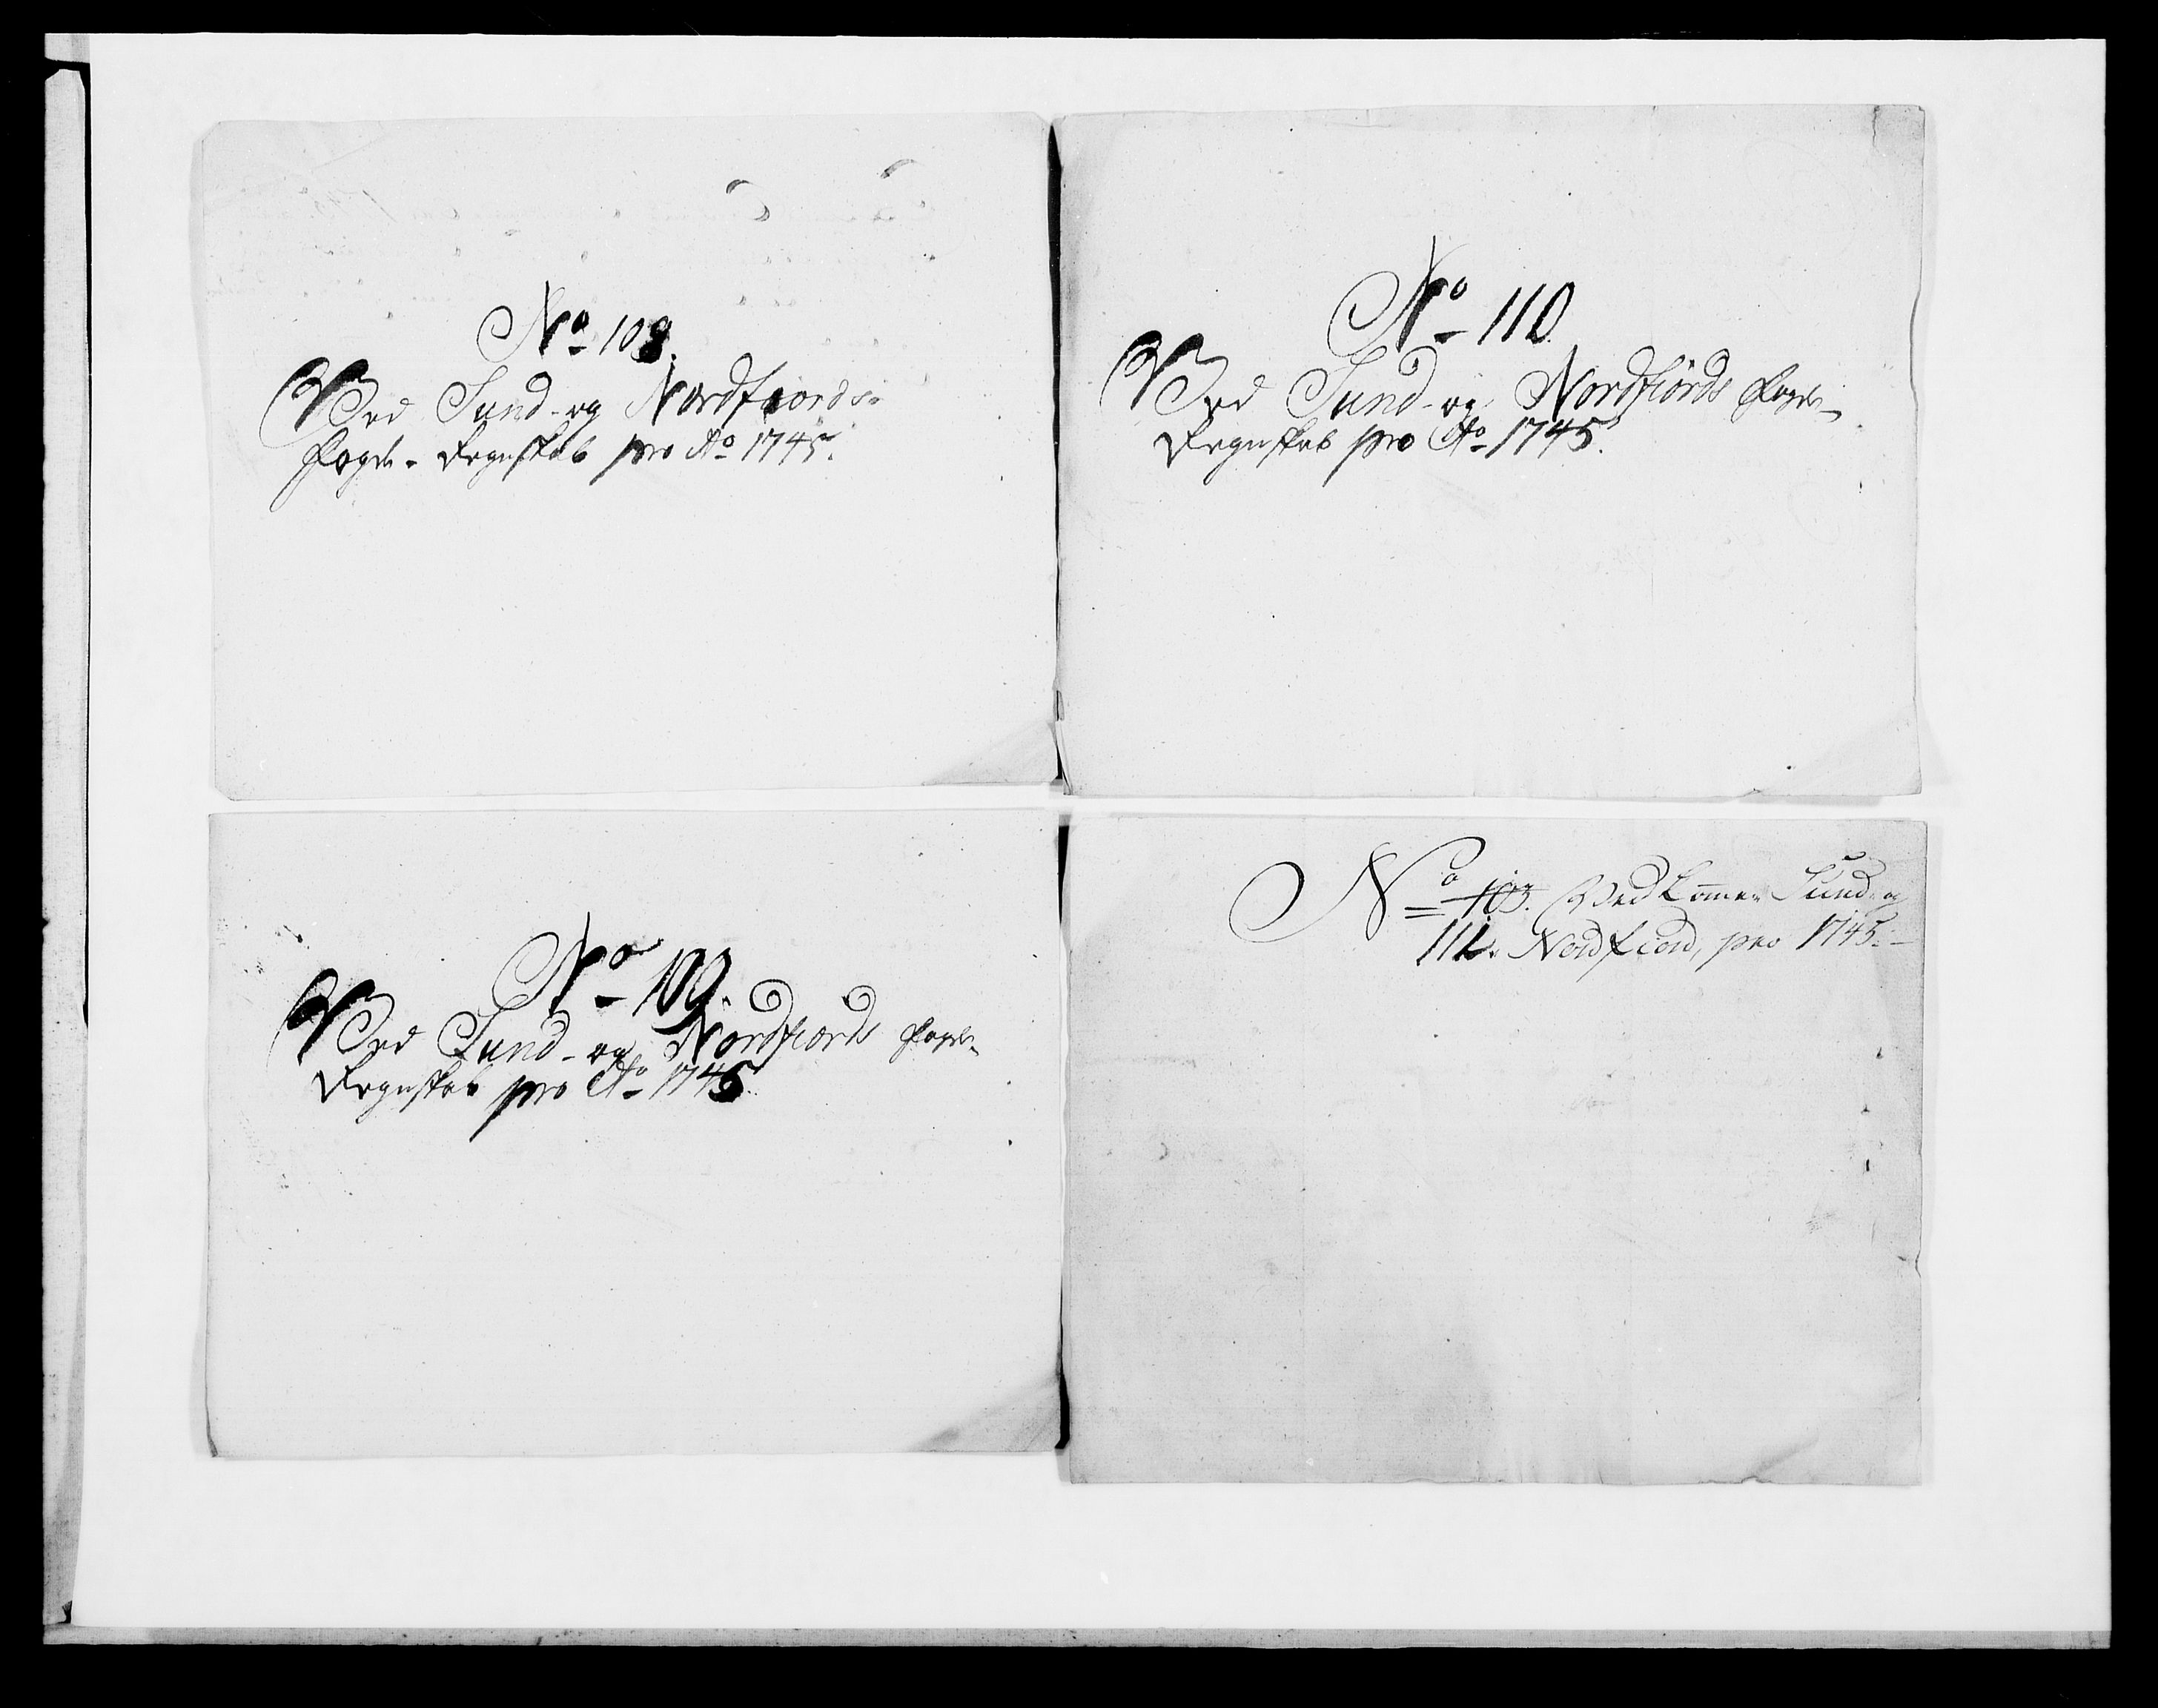 No 108.
Ved Sund- og Nordfiords-
Fogde- Regnskab pro Ao 1745.
No 110
Ved Sund- og Nordfiörds Fogde-
Regnskab pro Ao 1745.
No 109.
Ved Sund- og Nordfiords Fogde-
Regnskab pro Ao 1745
No 103. Ved Komer Sund- og
111. Nordfiord, pro 1745.